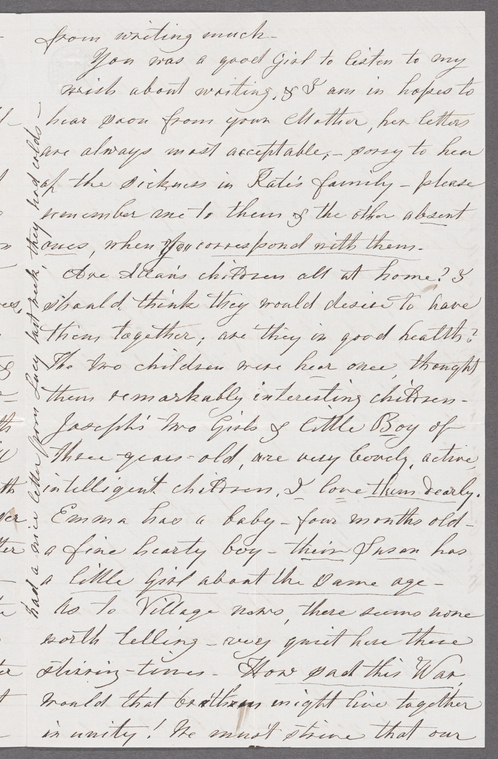 from writing much-
You was a good Girl to listen to my
wish about writing, & I am in hopes to
hear soon from your Mother, her letters
are always most acceptable,- sorry to hear
of the sickness in Kate's family- please
remember me to them & the other absent
ones, when you correspond with them-
Are Adam's children all at home? I
should think they would desire to have
them together, are they in good health?
The two children were hear once, thought
them remarkably interesting children-
Joseph's two Girls & little Boy of
three years-old, are very lovely, active
intelligent children, I love them dearly.
Emma has a baby- four months old-
a fine hearty boy- their Susan has
a little Girl about the same age-
As to Village news, there seems none
worth telling- very quiet here these
stirring-times- How sad this War,
would that brethren might live together
in unity! We must strive that our
had a nice letter from Lucy last week, they had colds-